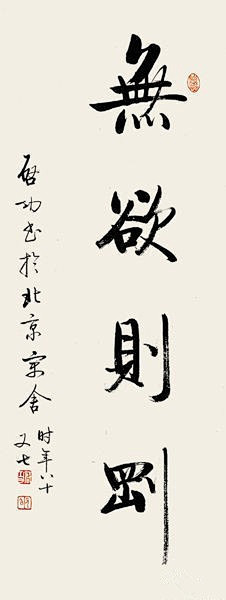 無欲則剛
啟功書於北京寓舍
時年八十
又七